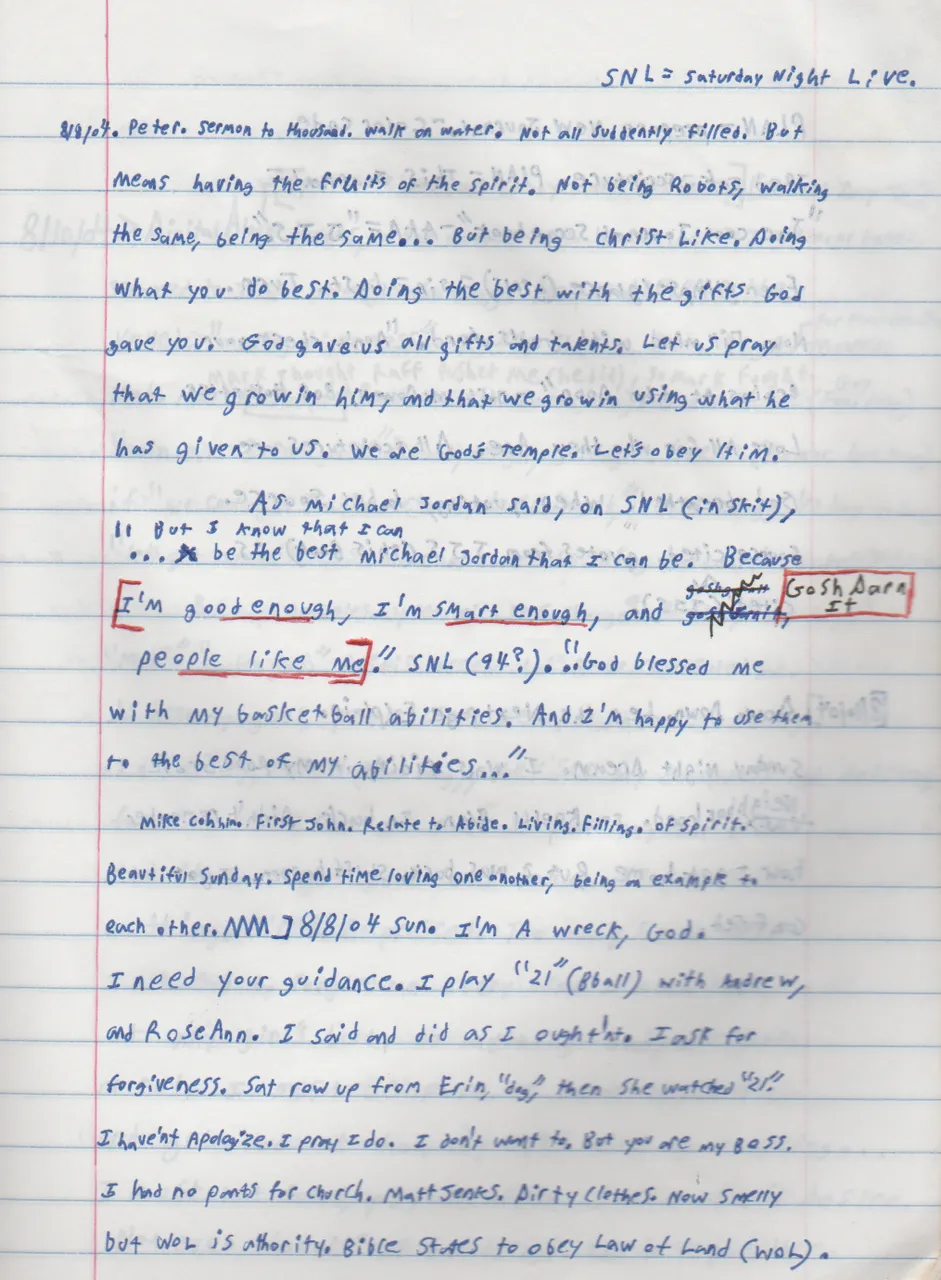 SNL = Saturday Night Live.
8/8/04. Peter. Sermon to thousand. Walk on water. Not all suddenly filled. But
means having the fruits of the spirit. Not being Robots, walking
the same, being the same... But being Christ Like. Doing
what you do best. Doing the best with the gifts God
gave you. God gave us all gifts and talents. Let us pray
that we grow in him, and that we grow in using what he
has given to us. We are God's Temple. Let's obey Him.
As Michael Jordan said, on SNL (in skit),
" But I know that I can
... be the best Michael Jordan that I can be. Because
[I'm good enough, I'm smart enough, and Gosh Darn
It
people like me]." SNL (94?). "God blessed me
with my basketball abilities. And I'm happy to use them
to the best of my abilities..."
Mike First John. Relate to Abide. Living. Filling. of spirit.
Beautiful Sunday. Spend time loving one another, being an example to
each other. ] 8/8/04 Sun. I'm A wreck, God.
I need your guidance. I play "21" (Bball) with Andrew,
and RoseAnn. I said and did as I ought'nt. I ask for
forgiveness. Sat row up from Erin, "dog," then she watched "21."
I have'nt Apologize. I pray I do. I don't want to. But you are my Boss.
I had no pants for church. Matt Jenks. Dirty Clothes. Now smelly
but WOL is athority. Bible States to obey Law of Land (WOL).